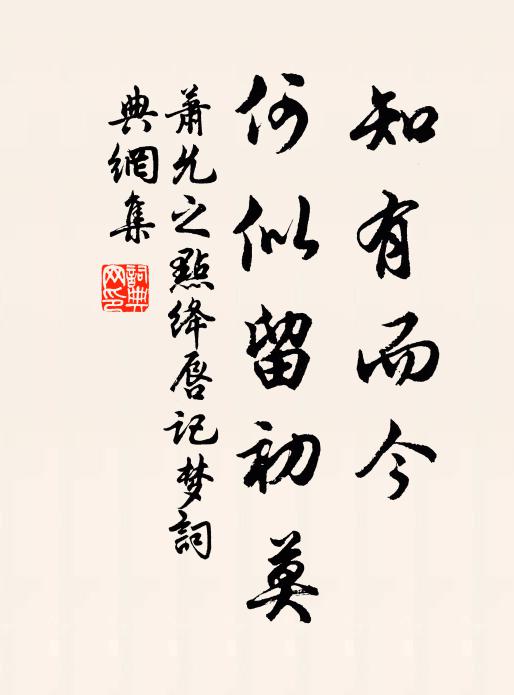 知有而今
何似留初莫
蕭允之點绛唇记梦詞
典網集
詞典网印